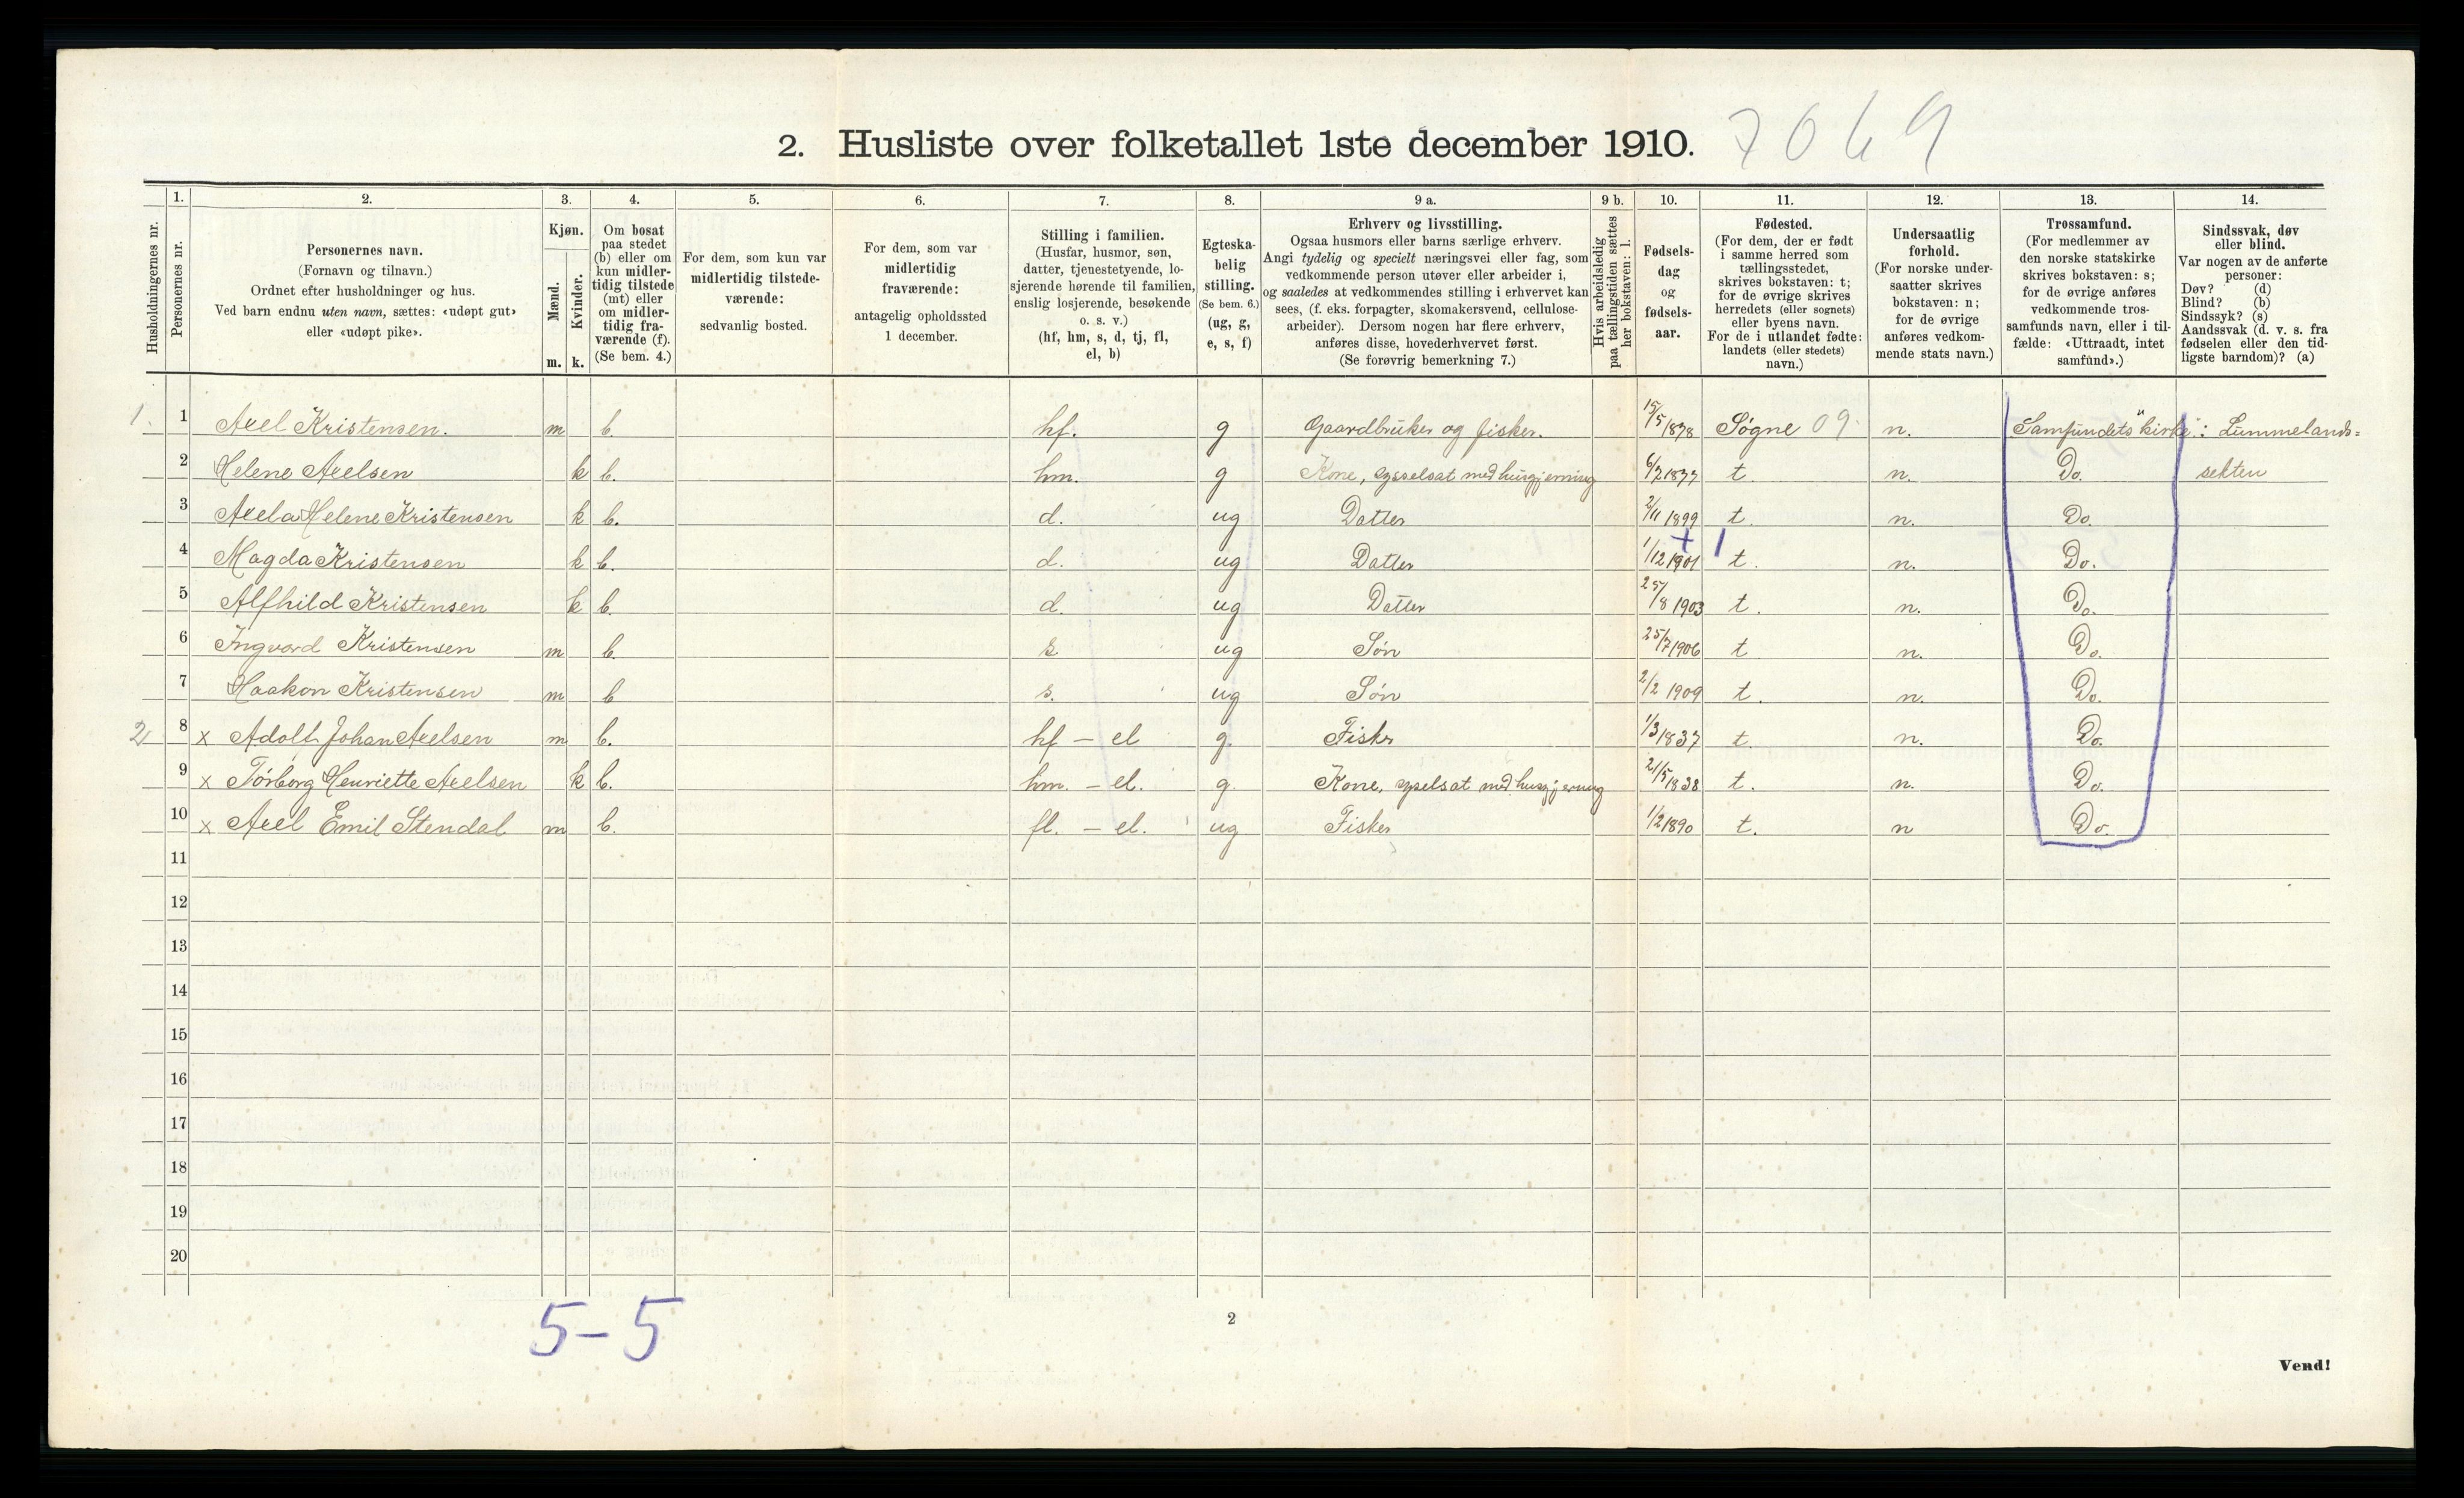 2. Husliste over folketallet 1ste december 1910. 7069
Husholdningernes nr.
1. Personernes nr.
2. Personernes navn. (Fornavn og tilnavn.) Ordnet efter husholdninger og hus. Ved barn endnu uten navn, sættes: «udøpt gut» eller «udøpt pike».
3. Kjøn. Mænd. m. Kvinder. k.
4. Om bosat paa stedet (b) eller om kun midlertidig tilstede (mt) eller om midlertidig fraværende (f). (Se bem. 4.)
5. For dem, som kun var midlertidig tilstedeværende: sedvanlig bosted.
6. For dem, som var midlertidig fraværende: antagelig opholdssted 1 december.
7. Stilling i familien. (Husfar, husmor, søn, datter, tjenestetyende, losjerende hørende til familien, enslig losjerende, besøkende o. s. v.) (hf, hm, s, d, tj, fl, el, b)
8. Egteskabelig stilling. (Se bem. 6.) (ug, g, e, s, f)
9 a. Erhverv og livsstilling. Ogsaa husmors eller barns særlige erhverv. Angi tydelig og specielt næringsvei eller fag, som vedkommende person utøver eller arbeider i, og saaledes at vedkommendes stilling i erhvervet kan sees, (f. eks. forpagter, skomakersvend, cellulosearbeider). Dersom nogen har flere erhverv, anføres disse, hovederhvervet først. (Se forøvrig bemerkning 7.)
9 b. Hvis arbeidsledig paa tællingstiden sættes her bokstaven: l.
10. Fødselsdag og fødselsaar.
11. Fødested. (For dem, der er født i samme herred som tællingsstedet, skrives bokstaven: t; for de øvrige skrives herredets (eller sognets) eller byens navn. For de i utlandet fødte: landets (eller stedets) navn.)
12. Undersaatlig forhold. (For norske undersaatter skrives bokstaven: n; for de øvrige anføres vedkommende stats navn.)
13. Trossamfund. (For medlemmer av den norske statskirke skrives bokstaven: s; for de øvrige anføres vedkommende trossamfunds navn, eller i tilfælde: «Uttraadt, intet samfund».)
14. Sindssvak, døv eller blind. Var nogen av de anførte personer: Døv? (d) Blind? (b) Sindssyk? (s) Aandssvak (d. v. s. fra fødselen eller den tidligste barndom)? (a)
1. 1 Axel Kristensen. m b. hf. g Gaardbruker og fisker. 15/5 1878 Søgne 09 n. "Samfundets" kirke: Lummelands=
2 Helene Axelsen k b. hm. g Kone, sysselsat med husgjerning 6/7 1877 t. n. Do. sekten
3 Axela Helene Kristensen k b. d. ug Datter 2/11 1899 t. n. Do.
4 Magda Kristensen k b. d. ug Datter 1/12 1901 + 1 t. n. Do.
5 Alfhild Kristensen k b. d. ug Datter 25/8 1903 t. n. Do.
6 Ingvard Kristensen m b. s. ug Søn 25/7 1906 t n. Do.
7 Haakon Kristensen m b s. ug Søn 2/2 1909 t. n. Do.
2 8 x Adolf Johan Axelsen m b. hf - el g. Fisker 1/3 1837 t. n. Do.
9 x Tørborg Henriette Axelsen k b. hm. - el. g. Kone, sysselsat med husgjerning 21/5 1838 t. n. Do.
10 x Axel Emil Stendal m b. fl. - el. ug Fisker 1/2 1890 t. n Do.
11
12
13
14
15
16
17
18
19
20
5-5
2
Vend!